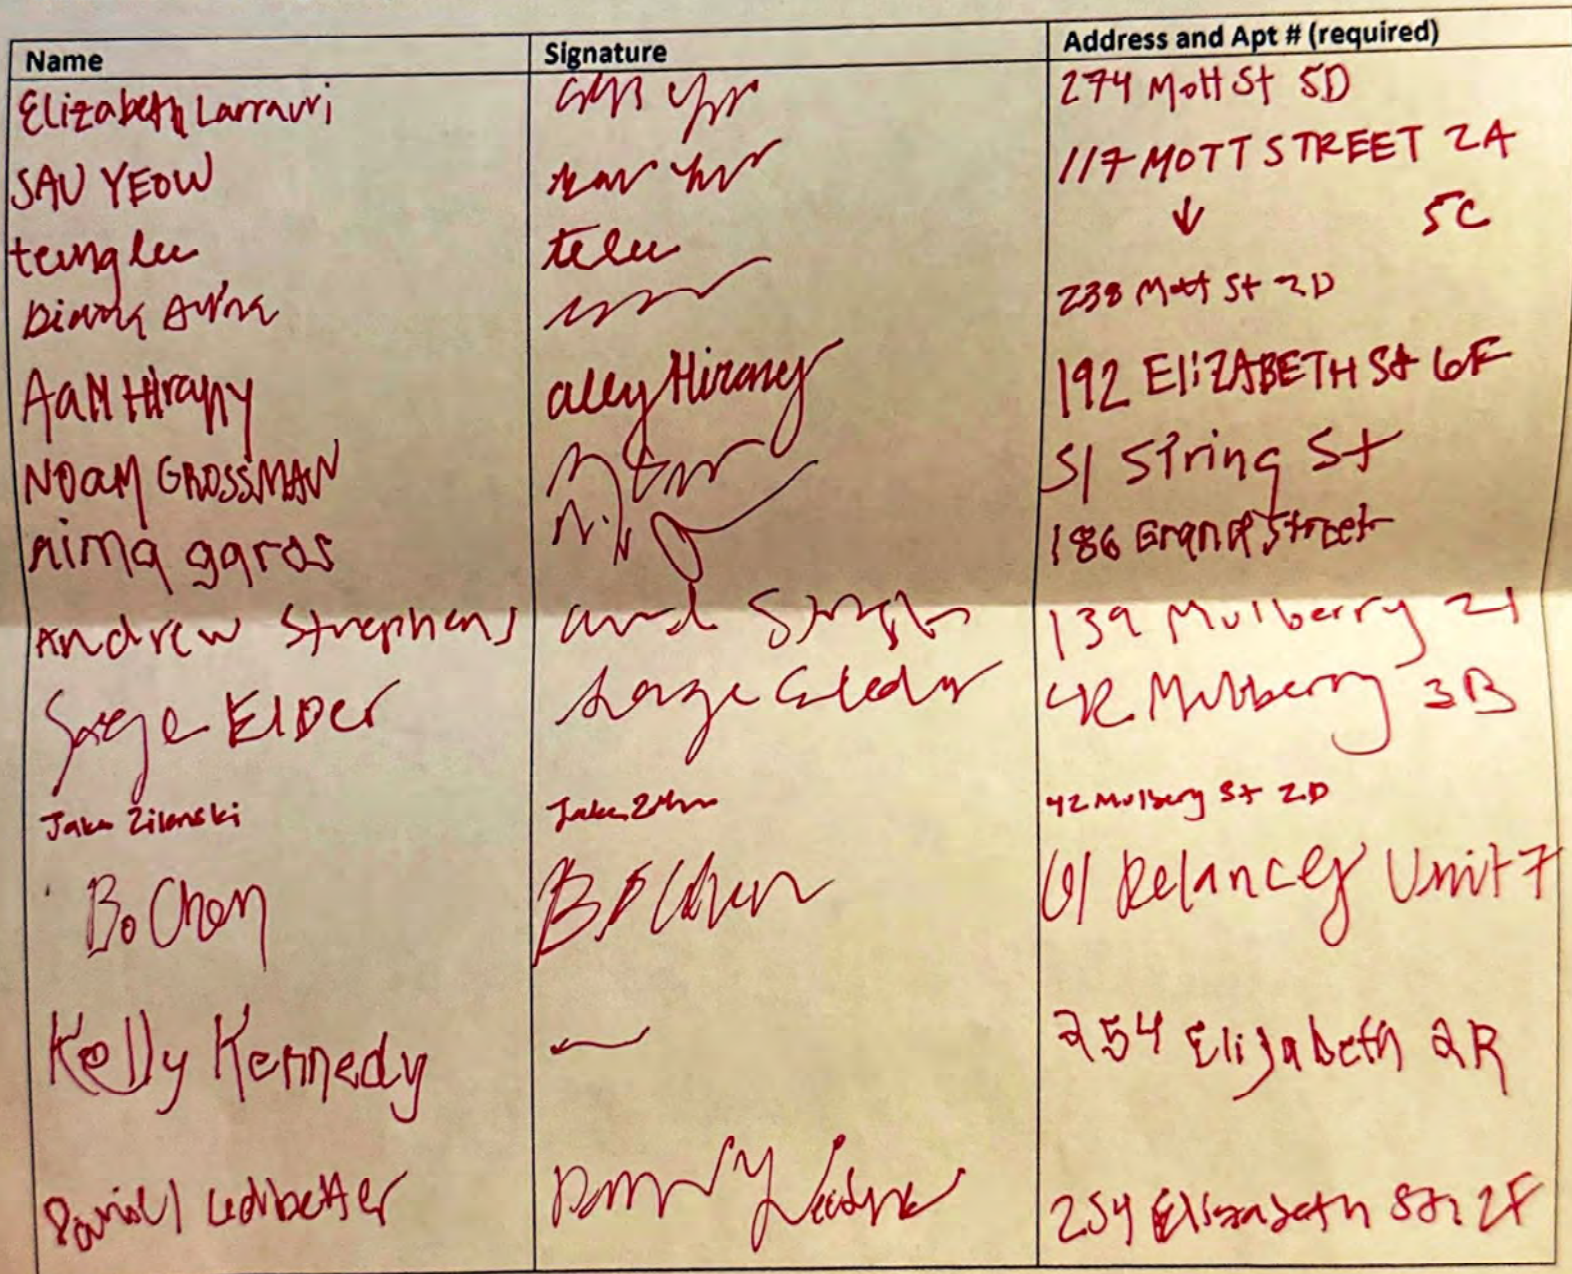 Name Signature Address and Apt # (required)
Elizabeth Larrauri 274 Mott St 5D
SAU YEOW 117 MOTT STREET 2A
teung lee telee ↓ 5C
Diana 238 Mott St 2D
Hirany ally Hirany 192 EliZABETH St 6F
NOaM GROSSMAN 51 String St
nima garos 186 Grand Street
Andrew Strephens 139 Mulberry 21
Sage ElDer Sage Elder 42 Mulberry 3B
Jake Zilenski Jake 42 Mulbery St 2D
Bo Chen Bo Chen 61 Delancey Unit 7
Kelly Kennedy 254 Elizabeth 2R
Daniel Ledbetter 254 Elizabeth St. 2F